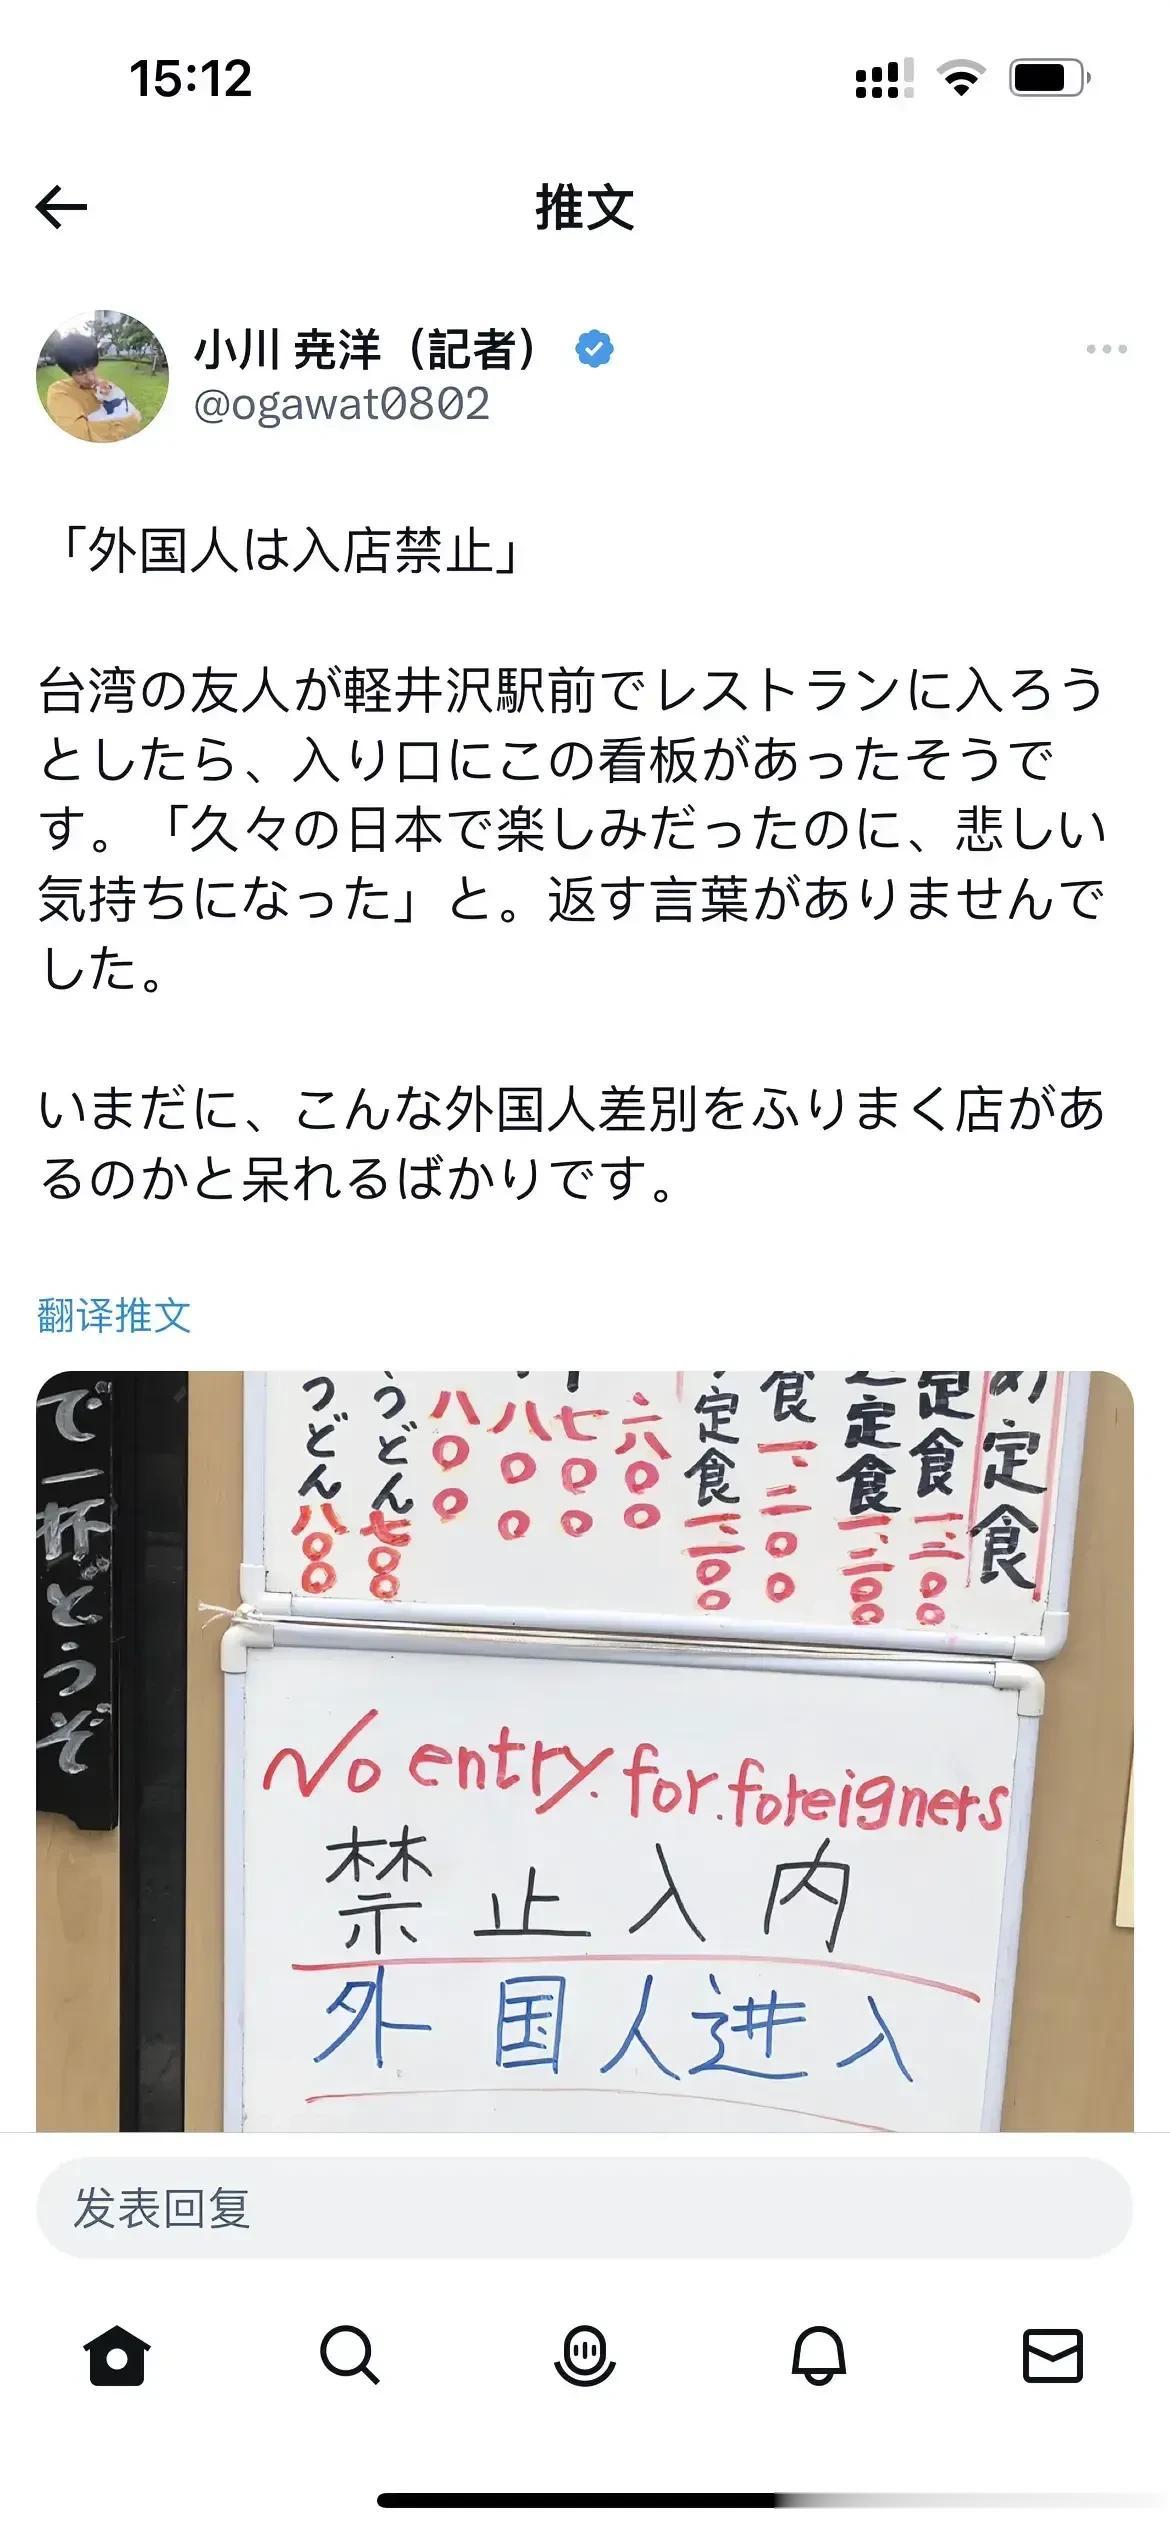 15:12
推文
小川 尭洋（記者）
@ogawat0802
「外国人は入店禁止」
台湾の友人が軽井沢駅前でレストランに入ろう
としたら、入り口にこの看板があったそうで
す。「久々の日本で楽しみだったのに、悲しい
気持ちになった」と。返す言葉がありませんで
した。
いまだに、こんな外国人差別をふりまく店があ
るのかと呆れるばかりです。
翻译推文
で一杯どうぞ
の定食
定食 一、三〇〇
定食 一、三〇〇
食 一、二〇〇
定食 一、一〇〇
六〇〇
七〇〇
八〇〇
八〇〇
うどん 七〇〇
うどん 八〇〇
No entry. for. foreigners
禁止入内
外国人进入
发表回复